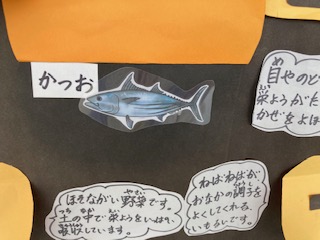 かつお
目やのど
栄ようがた
かぜをよぼ
ほそながい野菜です。
土の中で栄ようをいっぱい
吸収しています。
ねばねばが
おなかの調子を
よくしてくれる、
いもるいです。